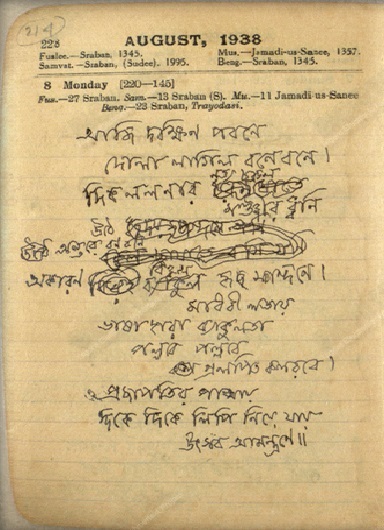 214
228 AUGUST, 1938
Fuslee.—Sraban, 1345. Mus.—Jamadi-us-Sanee, 1357.
Samvat.—Sraban, (Sudee). 1995. Beng.—Sraban, 1345.
8 Monday [220—145]
Fus.—27 Sraban. Sam.—13 Sraban (S). Mu.—11 Jamadi-us-Sanee
Beng.—23 Sraban, Trayodasi.
আজি দক্ষিণ পবনে
দোলা লাগিল বনে বনে।
দিক ললনার নৃত্য চঞ্চল
মঞ্জীর ধ্বনি
অন্তরে
অকারণ বিহ্বল হৃৎ স্পন্দনে।
মাধবী লতায়
ভাষাহারা ব্যাকুলতা
পল্লবে পল্লবে
প্রলপিত কলরবে।
প্রজাপতির পাখায়
দিকে দিকে লিপি নিয়ে যায়
উৎসব আমন্ত্রণে॥